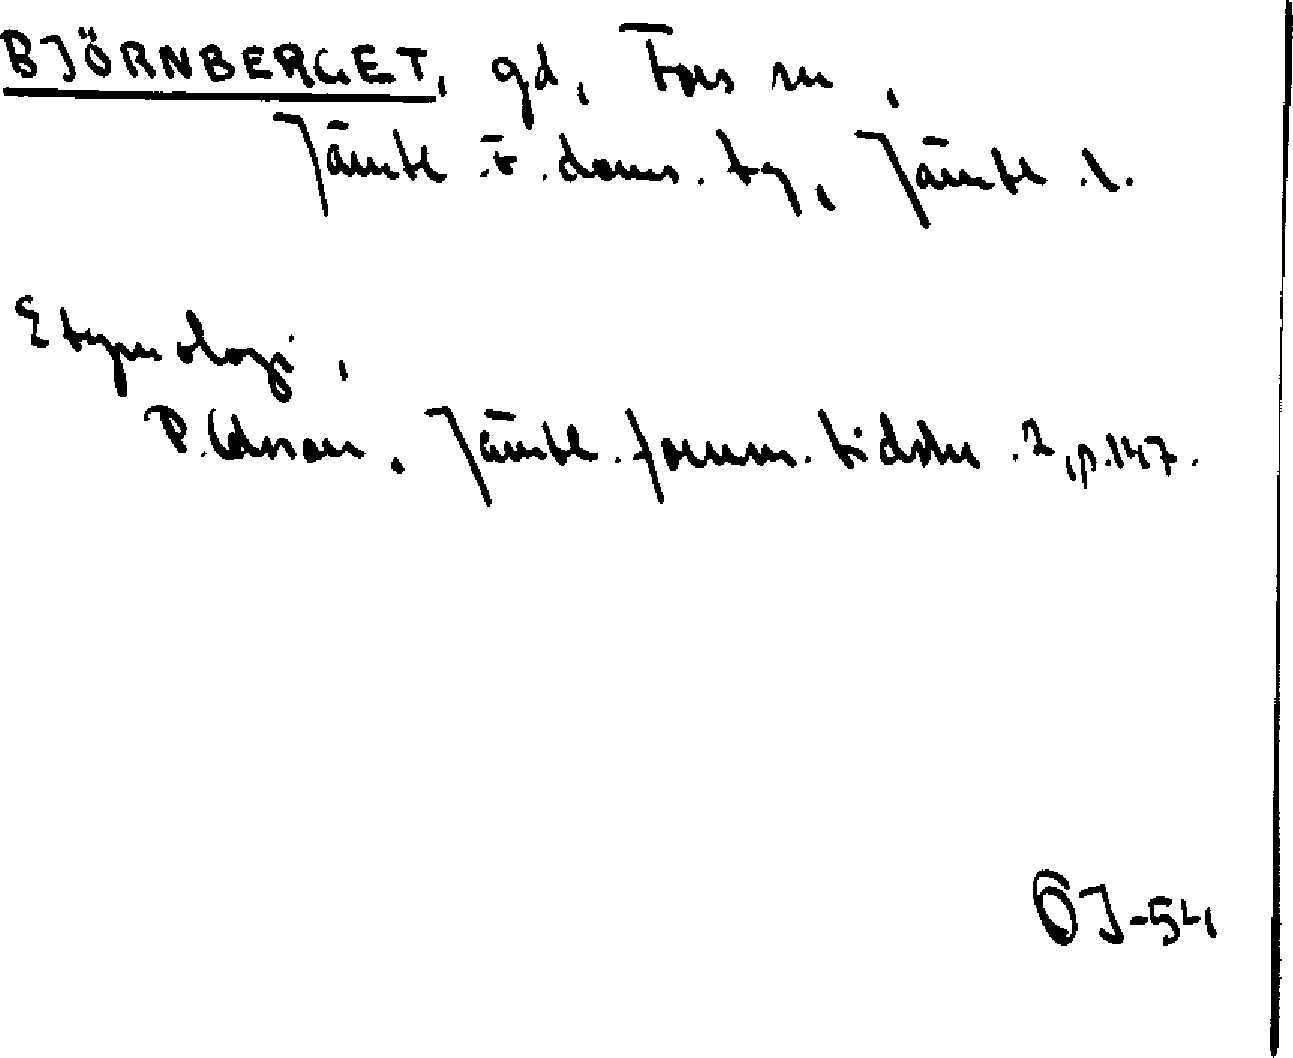 BJÖRNBERGET, gd, Fors sn,
Jämtl. ö. doms. tg, Jämtl. l.
Etymologi,
P. Edsson, Jämtl. fornm. tidskr. 2, p. 147.
ÖJ-54